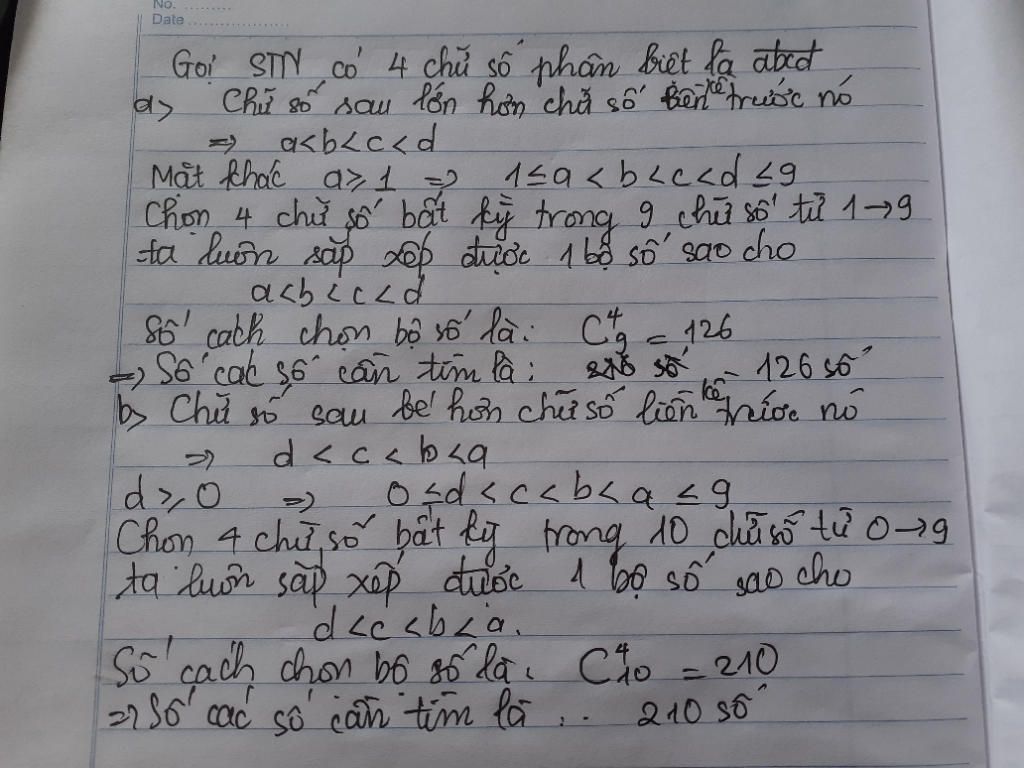 No. .........
Date ..................
Gọi STN có 4 chữ số phân biệt là abcd
a> Chữ số sau lớn hơn chữ số liền kề trước nó
=> a<b<c<d
Mặt khác a≥1 => 1≤a<b<c<d≤9
Chọn 4 chữ số bất kỳ trong 9 chữ số từ 1→9
ta luôn sắp xếp được 1 bộ số sao cho
a<b<c<d
Số cách chọn bộ số là: C⁴₉ = 126
=> Số các số cần tìm là: 126 số
b> Chữ số sau bé hơn chữ số liền kề trước nó
=> d<c<b<a
d≥0 => 0≤d<c<b<a≤9
Chọn 4 chữ số bất kỳ trong 10 chữ số từ 0→9
ta luôn sắp xếp được 1 bộ số sao cho
d<c<b<a.
Số cách chọn bộ số là: C⁴₁₀ = 210
=> Số các số cần tìm là : . 210 số